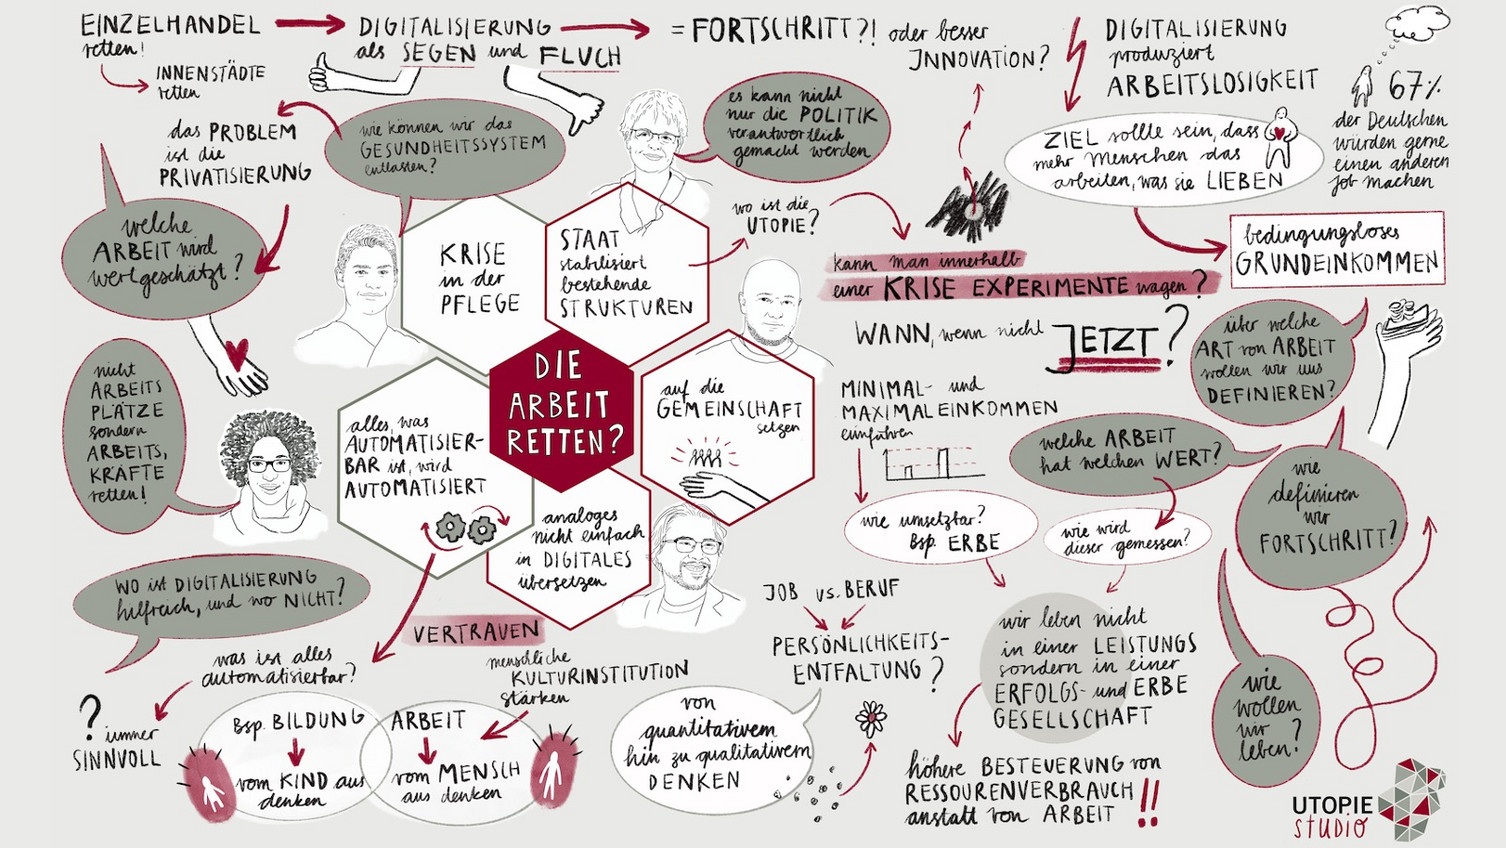 EINZELHANDEL
retten!
INNENSTÄDTE
retten
DIGITALISIERUNG
als SEGEN und FLUCH
= FORTSCHRITT?! oder besser
INNOVATION?
DIGITALISIERUNG
produziert
ARBEITSLOSIGKEIT
67%
der Deutschen
würden gerne
einen anderen
Job machen
das PROBLEM
ist die
PRIVATISIERUNG
wie können wir das
GESUNDHEITSSYSTEM
entlasten?
es kann nicht
nur die POLITIK
verantwortlich
gemacht werden
ZIEL sollte sein, dass
mehr Menschen das
arbeiten, was sie LIEBEN
welche
ARBEIT wird
wertgeschätzt?
KRISE
in der
PFLEGE
STAAT
stabilisiert
bestehende
STRUKTUREN
wo ist die
UTOPIE?
kann man innerhalb
einer KRISE EXPERIMENTE wagen?
WANN, wenn nicht JETZT?
bedingungsloses
GRUNDEINKOMMEN
über welche
ART von ARBEIT
wollen wir uns
DEFINIEREN?
nicht
ARBEITS
PLÄTZE
sondern
ARBEITS,
KRÄFTE
retten!
DIE
ARBEIT
RETTEN?
alles, was
AUTOMATISIER-
BAR ist, wird
AUTOMATISIERT
auf die
GEMEINSCHAFT
setzen
analoges
nicht einfach
in DIGITALES
übersetzen
MINIMAL- und
MAXIMALEINKOMMEN
einführen
wie umsetzbar?
Bsp. ERBE
welche ARBEIT
hat welchen WERT?
wie wird
dieser gemessen?
wie
definieren
wir
FORTSCHRITT?
WO ist DIGITALISIERUNG
hilfreich, und wo NICHT?
was ist alles
automatisierbar?
? immer
SINNVOLL
VERTRAUEN
menschliche
KULTURINSTITUTION
stärken
Bsp. BILDUNG
vom KIND aus
denken
ARBEIT
vom MENSCH
aus denken
JOB vs. BERUF
PERSÖNLICHKEITS-
ENTFALTUNG?
von
quantitativem
hin zu qualitativem
DENKEN
wir leben nicht
in einer LEISTUNGS
sondern in einer
ERFOLGS- und ERBE
GESELLSCHAFT
höhere BESTEUERUNG von
RESSOURENVERBRAUCH
anstatt von ARBEIT !!
wie
wollen
wir
leben?
UTOPIE
STUDIO